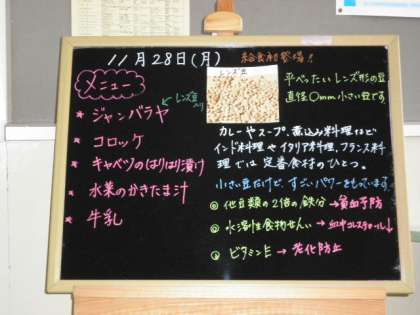 11月28日(月) 給食初登場！
メニュー
★ ジャンバラヤ
レンズ豆入り
★ コロッケ
★ キャベツのはりはり漬け
★ 水菜のかきたま汁
★ 牛乳
レンズ豆
平べったいレンズ形の豆
直径0mm小さい豆です
カレーやスープ、煮込み料理など
インド料理やイタリア料理、フランス料
理では定番食材のひとつ。
小さい豆だけど、すごいパワーをもっています
◎ 他豆類の2倍の鉄分→貧血予防
◎ 水溶性食物せんい→血中コレステロール↓
◎ ビタミンE→老化防止